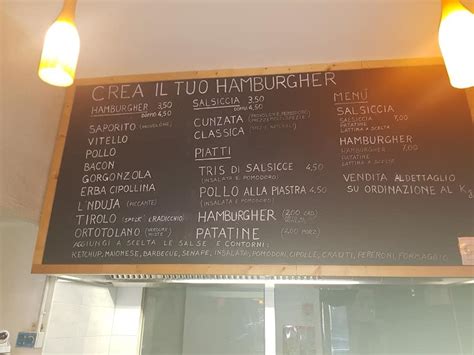 CREA IL TUO HAMBURGHER
HAMBURGHER 3,50
DOPPIO 4,50
SAPORITO
VITELLO
POLLO
BACON
GORGONZOLA
ERBA CIPOLLINA
L'NDUJA (PICCANTE)
TIROLO (SPECK E RADICCHIO)
ORTOTOLANO
AGGIUNGI A SCELTA LE SALSE E CONTORNI:
KETCHUP, MAIONESE, BARBECUE, SENAPE, INSALATA, POMODORI, CIPOLLE, CRAUTI, PEPERONI, FORMAGGIO
SALSICCIA 3,50
4,50
CUNZATA
CLASSICA
PIATTI
TRIS DI SALSICCE 4,50
(INSALATA E POMODORO)
POLLO ALLA PIASTRA 4,50
(INSALATA E POMODORO)
HAMBURGHER
PATATINE
MENÙ
SALSICCIA
SALSICCIA 7,00
PATATINE
LATTINA A SCELTA
HAMBURGHER
HAMBURGHER 7,00
PATATINE
LATTINA A SCELTA
VENDITA AL DETTAGLIO
SU ORDINAZIONE AL K